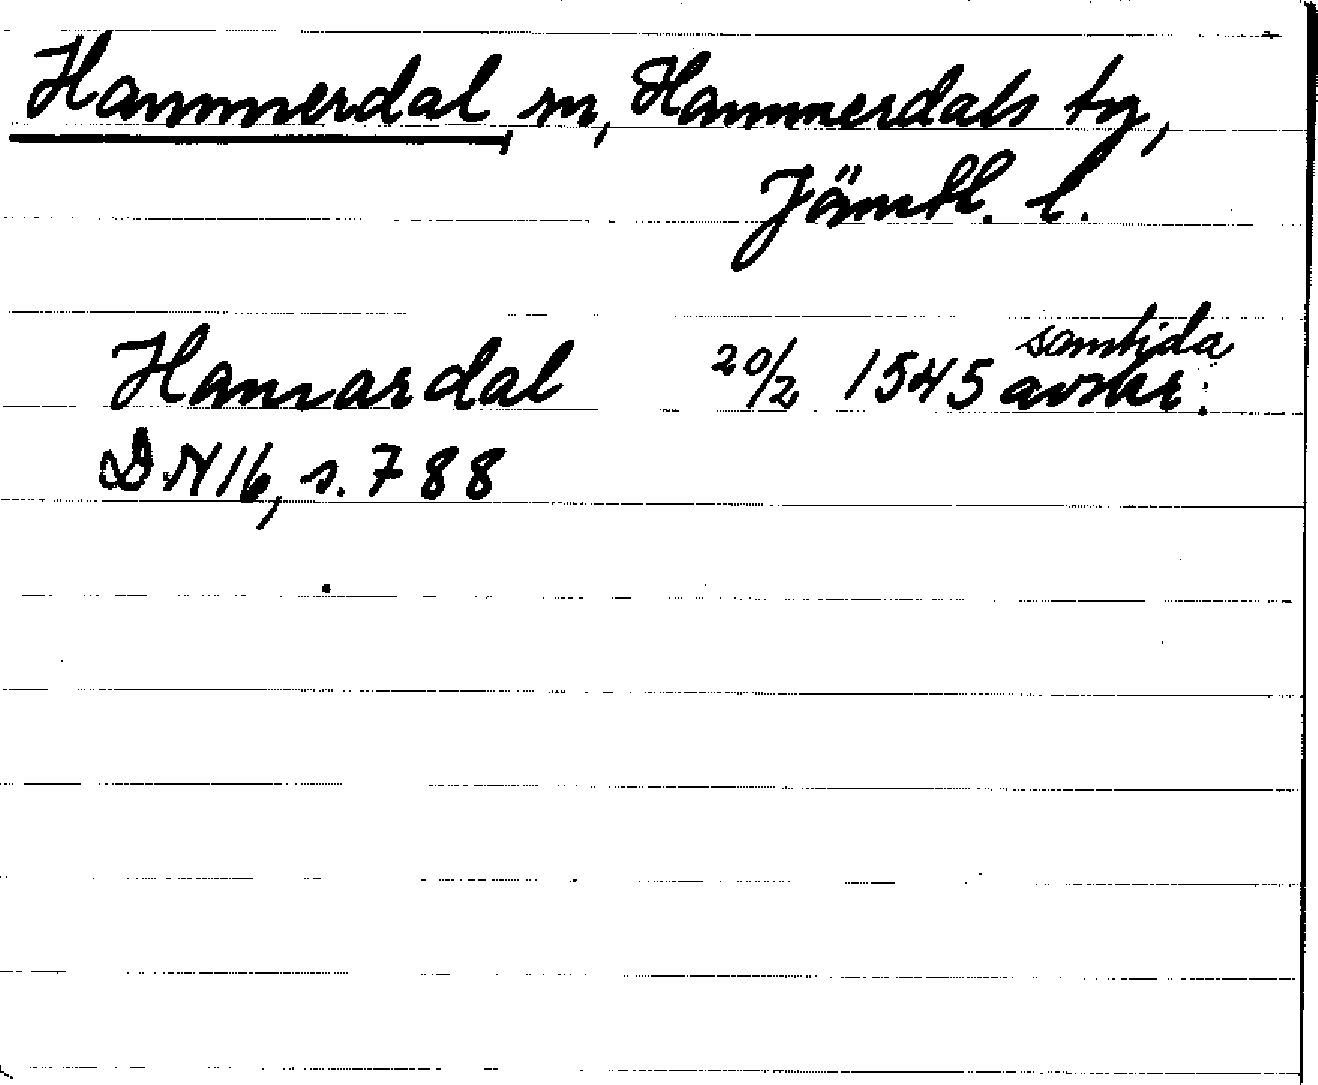 Hammerdal sn, Hammerdals tg,
Jämtl. l.
Hamardal 20/2 1545 samtida avskr.
DN16, s. 788